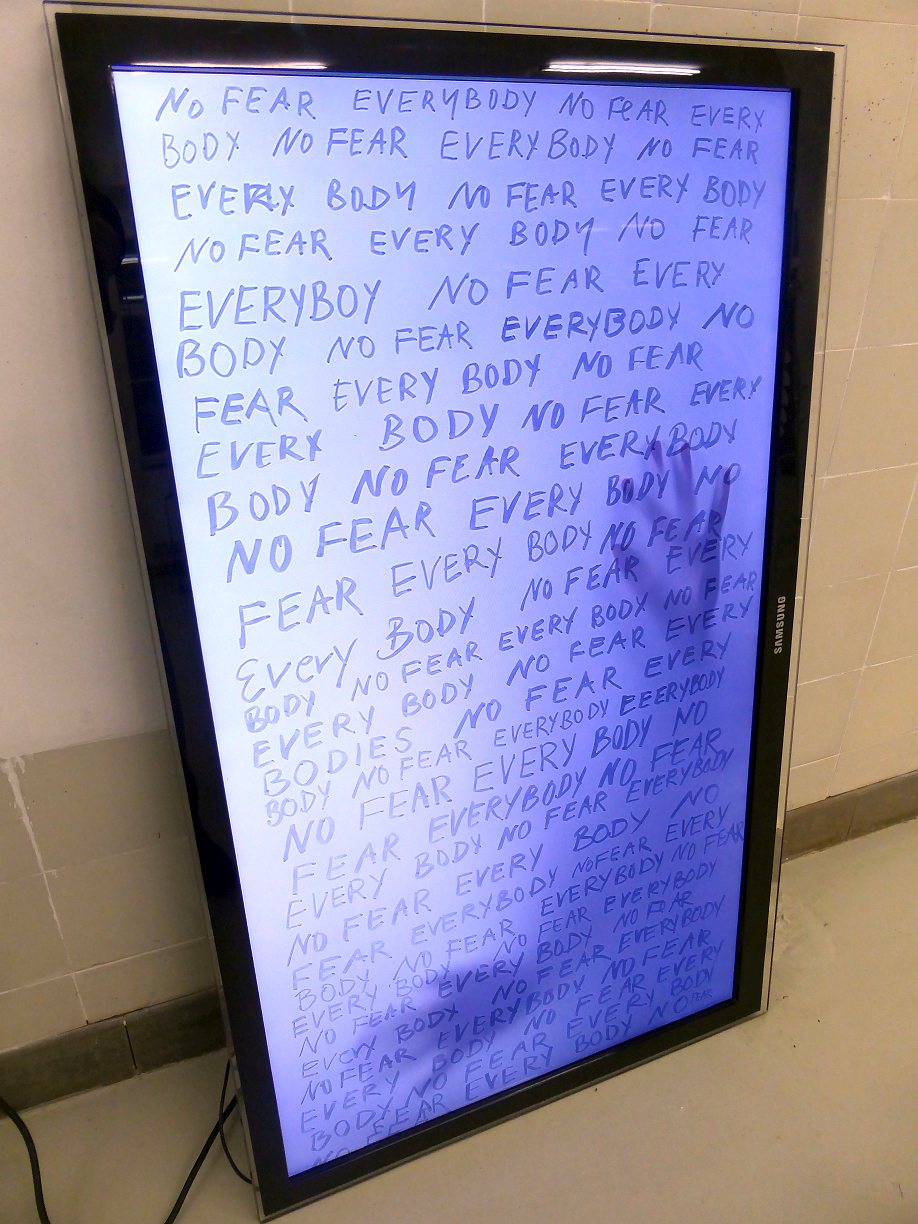 NO FEAR EVERYBODY NO FEAR EVERY
BODY NO FEAR EVERYBODY NO FEAR
EVERY BODY NO FEAR EVERY BODY
NO FEAR EVERY BODY NO FEAR
EVERYBOY NO FEAR EVERY
BODY NO FEAR EVERYBODY NO
FEAR EVERY BODY NO FEAR
EVERY BODY NO FEAR EVERY
BODY NO FEAR EVERYBODY
NO FEAR EVERY BODY NO
FEAR EVERY BODY NO FEAR
EVERY BODY NO FEAR EVERY
BODY NO FEAR EVERY BODY NO FEAR
EVERY BODY NO FEAR EVERY
BODIES NO FEAR EVERY
BODY NO FEAR EVERYBODY EEERYBODY
NO FEAR EVERY BODY NO
FEAR EVERYBODY NO FEAR
EVERY BODY NO FEAR EVERYBODY
NO FEAR EVERY BODY NO
FEAR EVERYBODY NO FEAR EVERY
BODY NO FEAR EVERYBODY NO FEAR
EVERY BODY NO FEAR EVERYBODY
NO FEAR EVERY BODY NO FEAR
EVERY BODY NO FEAR EVERYBODY
NO FEAR EVERYBODY NO FEAR
EVERY BODY NO FEAR EVERY
BODY NO FEAR EVERY BODY
NO FEAR EVERY BODY NO FEAR
SAMSUNG